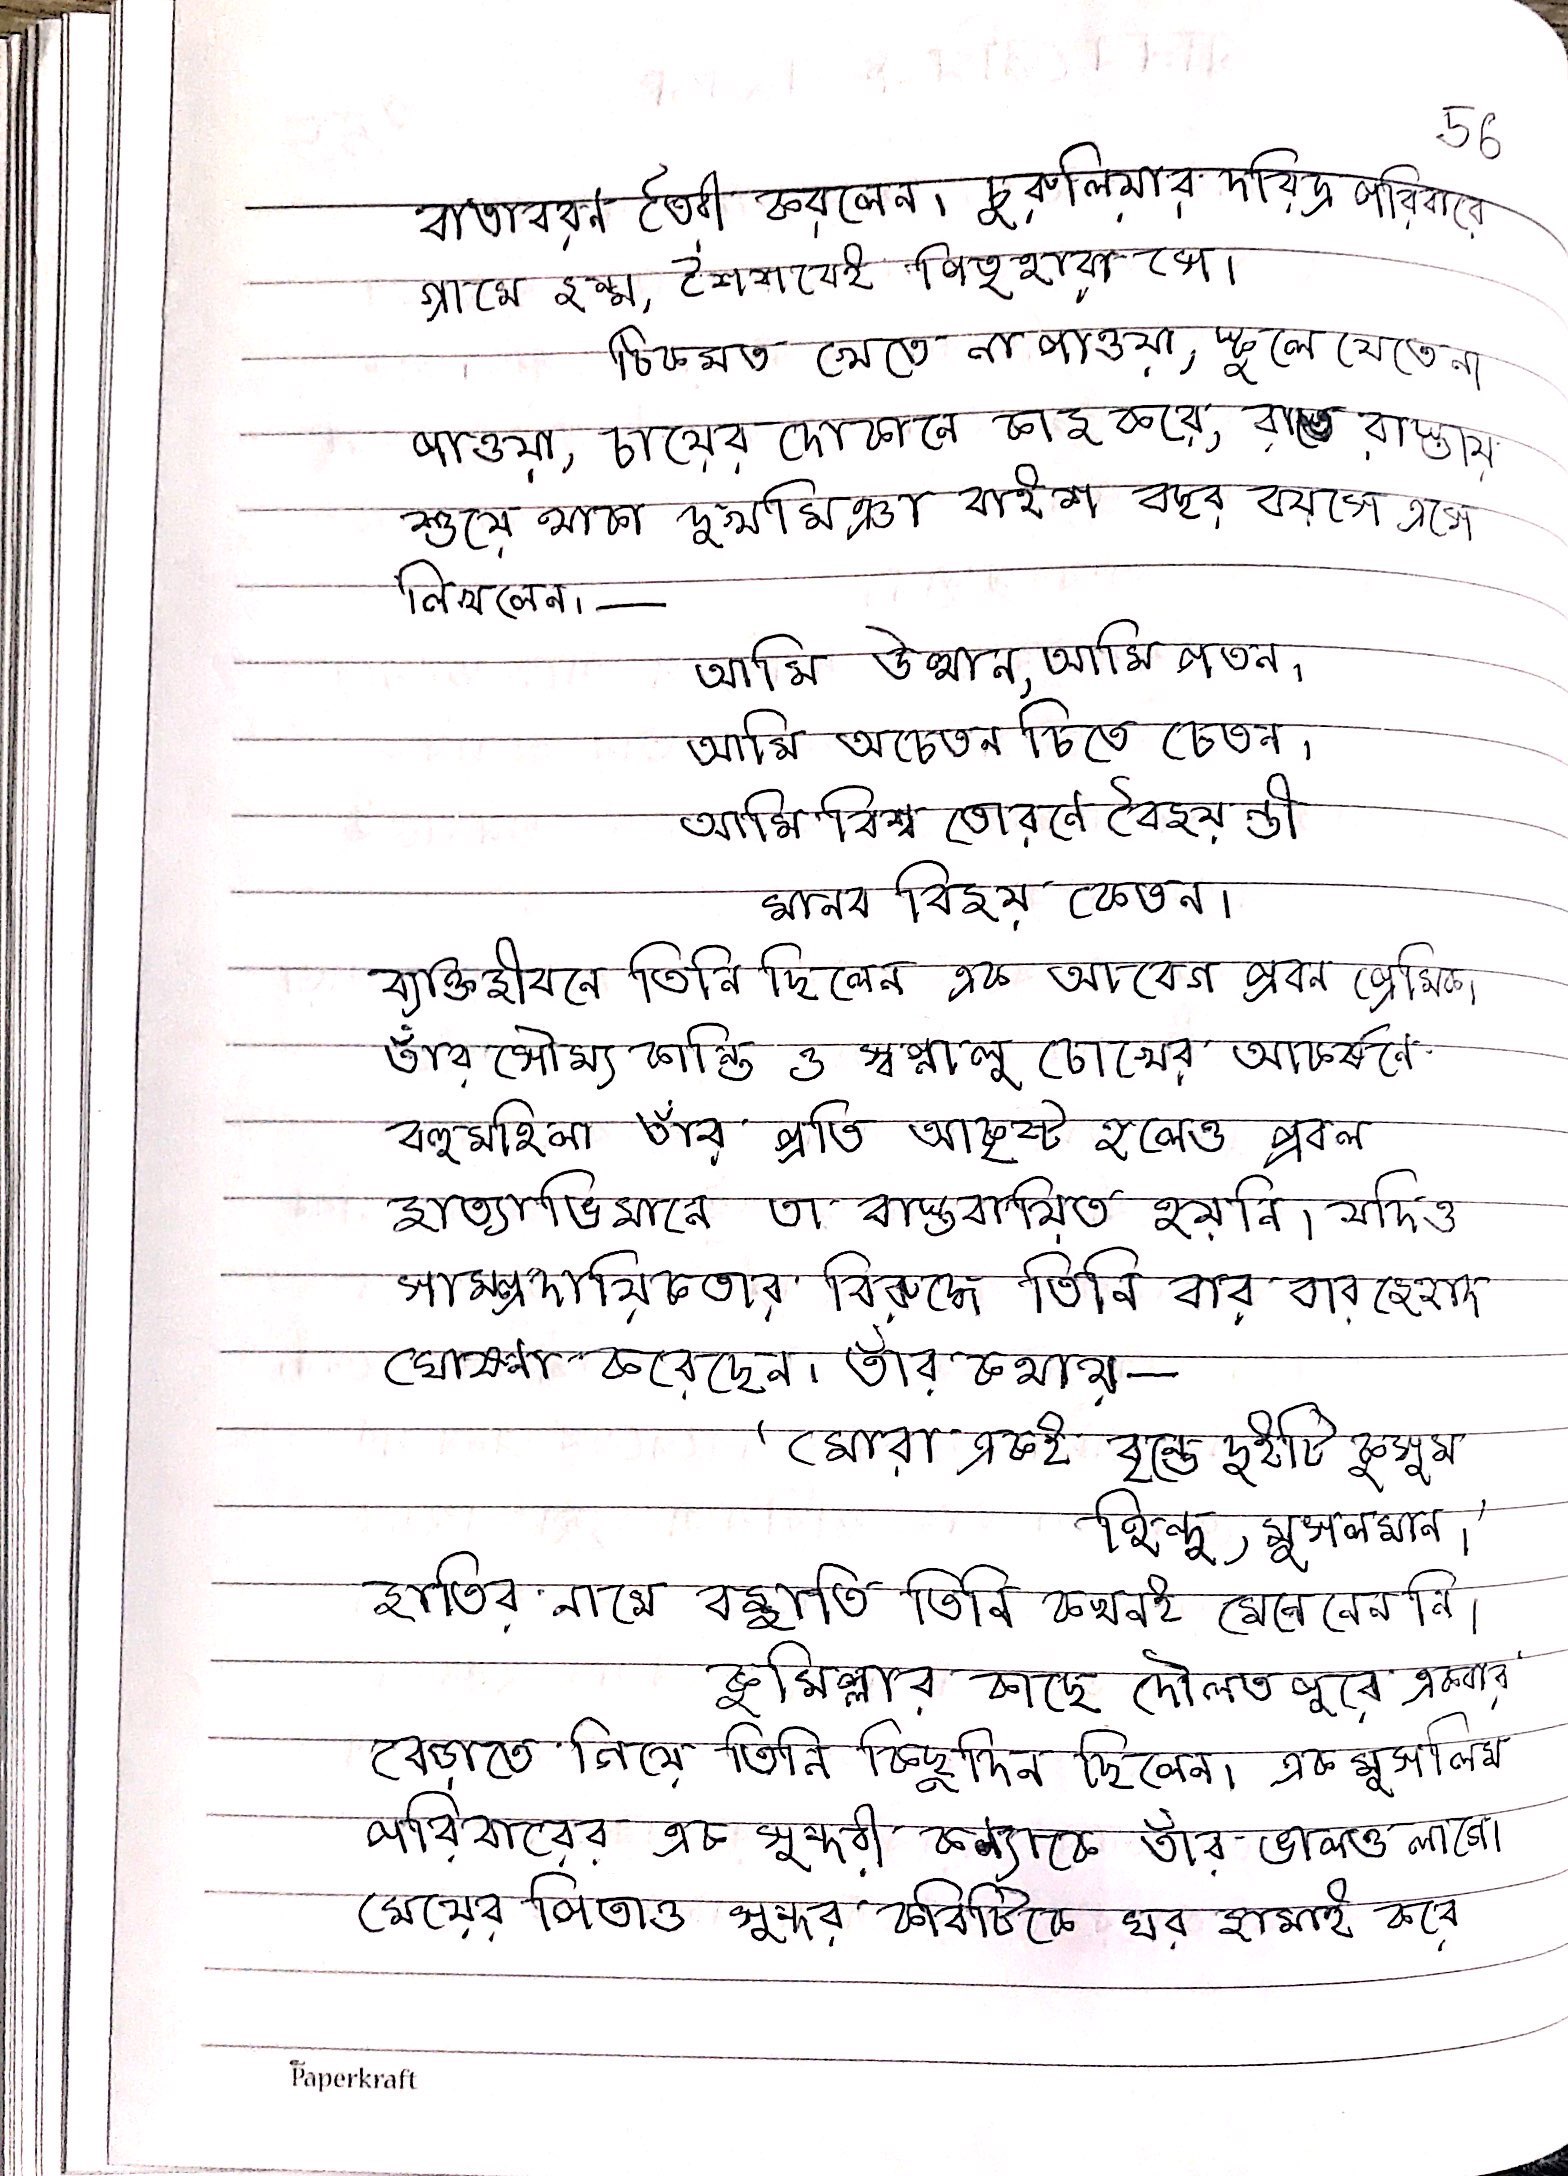 56
বাতাবরন তৈরী করলেন। চুরুলিয়ার দরিদ্র পরিবারে
গ্রামে জন্ম, শৈশবেই পিতৃহারা সে।
ঠিকমত খেতে না পাওয়া, স্কুলে যেতে না
পাওয়া, চায়ের দোকানে কাজ করে, রাতে রাস্তায়
শুয়ে থাকা দুখুমিঞা বাইশ বছর বয়সে এসে
লিখলেন।—
আমি উত্থান, আমি পতন।
আমি অচেতন চিতে চেতন।
আমি বিশ্ব তোরনে বৈজয়ন্তী
মানব বিজয় কেতন।
ব্যক্তিজীবনে তিনি ছিলেন এক আবেগ প্রবন প্রেমিক।
তাঁর সৌম্য কান্তি ও স্বপ্নালু চোখের আকর্ষনে
বহুমহিলা তাঁর প্রতি আকৃষ্ট হলেও প্রবল
জাত্যাভিমানে তা বাস্তবায়িত হয়নি। যদিও
সাম্প্রদায়িকতার বিরুদ্ধে তিনি বার বার জেহাদ
ঘোষনা করেছেন। তাঁর কথায়—
'মোরা একই বৃন্তে দুইটি কুসুম
হিন্দু, মুসলমান।'
জাতির নামে বজ্জাতি তিনি কখনই মেনে নেননি।
কুমিল্লার কাছে দৌলতপুরে একবার
বেড়াতে গিয়ে তিনি কিছুদিন ছিলেন। এক মুসলিম
পরিবারের এক সুন্দরী কন্যাকে তাঁর ভালও লাগে।
মেয়ের পিতাও সুন্দর কবিটিকে ঘর জামাই করে
Paperkraft